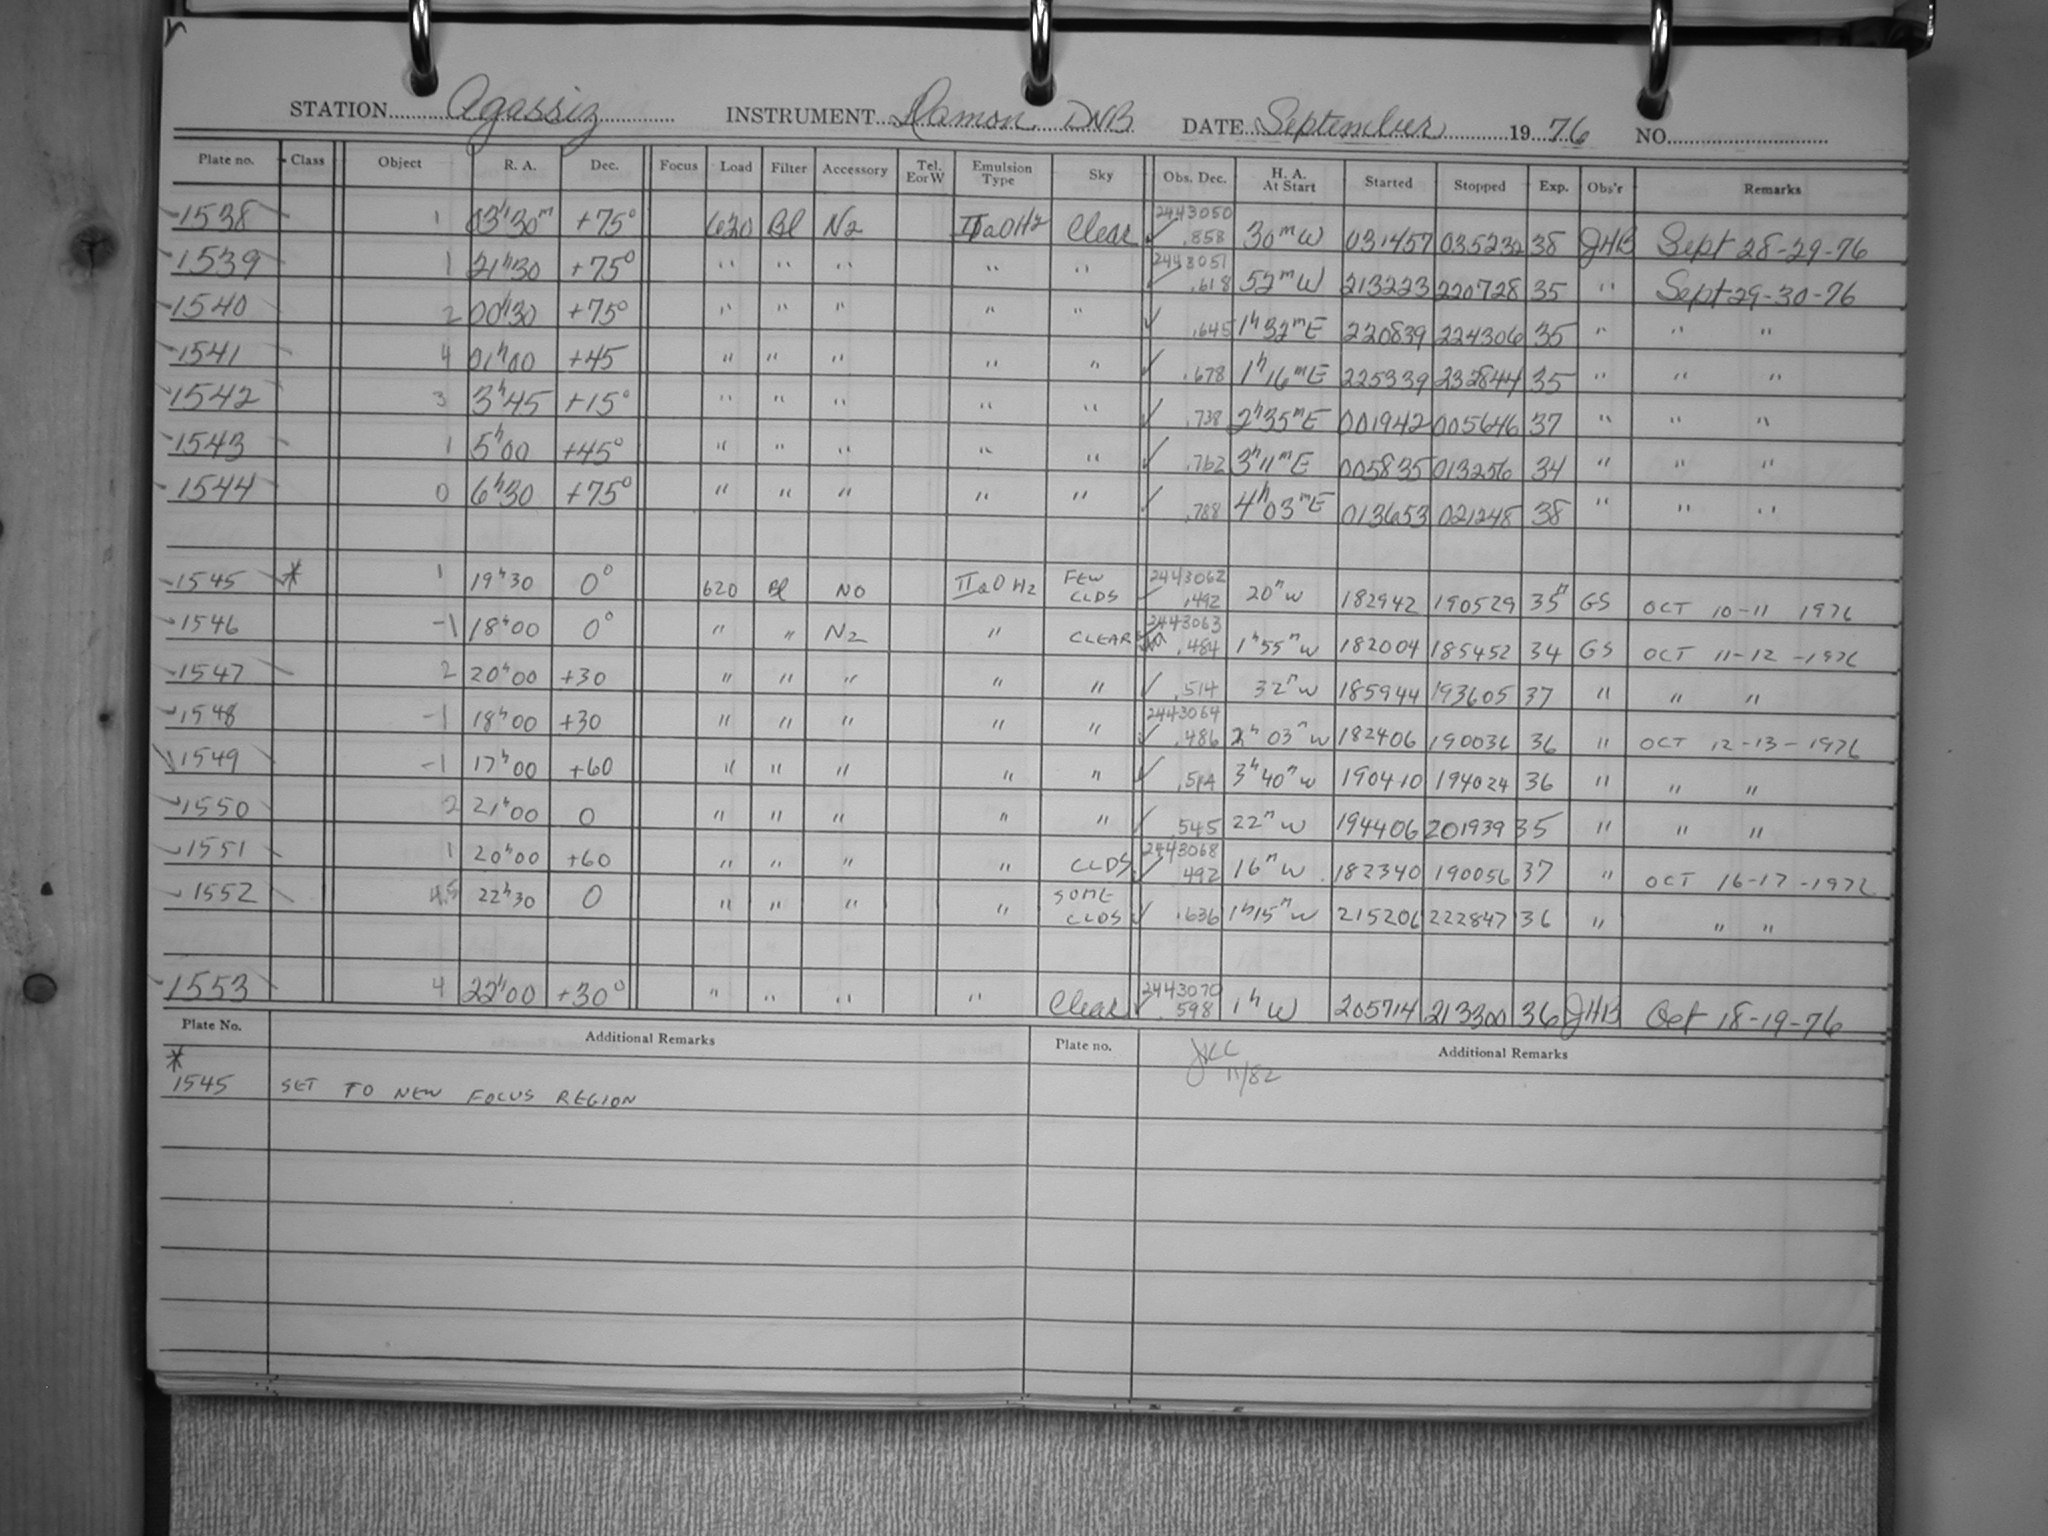 STATION Agassiz INSTRUMENT Damon DNB DATE September 1976 NO.
Plate no. Class Object R. A. Dec. Focus Load Filter Accessory Tel. E or W Emulsion Type Sky Obs. Dec. H. A. At Start Started Stopped Exp. Obs'r Remarks
1538 1 03h30m +75° 620 Bl N2 IIaOH2 Clear 2443050 .858 30m W 031457 035232 38 JHB Sept 28-29-76
1539 1 21h30 +75° " " " " " 2443051 .618 52m W 213223 220728 35 " Sept 29-30-76
1540 2 00h30 +75° " " " " " .645 1h32mE 220839 224306 35 " " "
1541 4 01h00 +45 " " " " " .678 1h16mE 225339 232844 35 " " "
1542 3 3h45 +15° " " " " " .738 2h35mE 001942 005646 37 " " "
1543 1 5h00 +45° " " " " " .762 3h11mE 005835 013256 34 " " "
1544 0 6h30 +75° " " " " " .788 4h03mE 013653 021248 38 " " "
1545 * 1 19h30 0° 620 Bl NO IIaO H2 FEW CLDS 2443062 .492 20m W 182942 190529 35m GS OCT 10-11 1976
1546 -1 18h00 0° " " N2 " CLEAR 2443063 .484 1h55m W 182004 185452 34 GS OCT 11-12 -1976
1547 2 20h00 +30 " " " " " .514 32m W 185944 193605 37 " " "
1548 -1 18h00 +30 " " " " " 2443064 .486 2h 03m W 182406 190036 36 " OCT 12-13-1976
1549 -1 17h00 +60 " " " " " .514 3h40m W 190410 194024 36 " " "
1550 2 21h00 0 " " " " " .545 22m W 194406 201939 35 " " "
1551 1 20h00 +60 " " " " CLDS 2443068 .492 16m W 182340 190056 37 " OCT 16-17-1976
1552 4.5 22h30 0 " " " " SOME CLDS .636 1h15m W 215206 222847 36 " " "
1553 4 22h00 +30° " " " " Clear 2443070 .598 1h W 205714 213300 36 JHB Oct 18-19-76
Plate No. Additional Remarks Plate no. Additional Remarks
* 1545 SET TO NEW FOCUS REGION
11/82